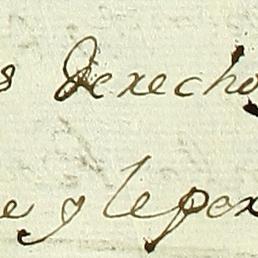 s derecho
e y le per